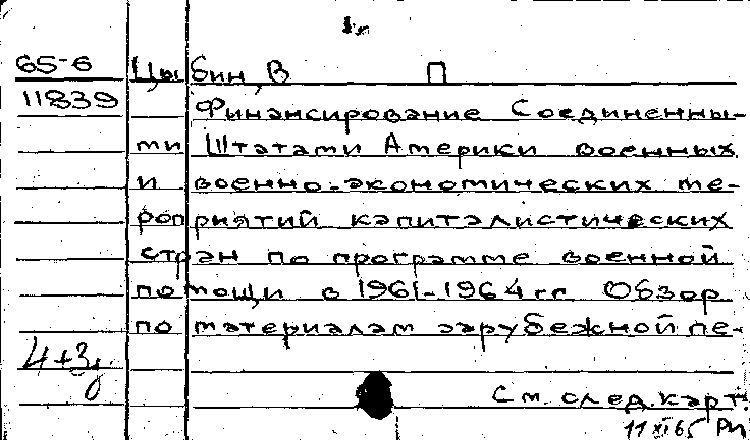 65-6 Цыбин, В П
11839 Финансирование Соединенны-
ми Штатами Америки военных
и военно-экономических ме-
роприятий капиталистических
стран по программе военной
помощи в 1961-1964 гг Обзор
по материалам зарубежной пе-
4+3
См. след. карт.
11 XI 65